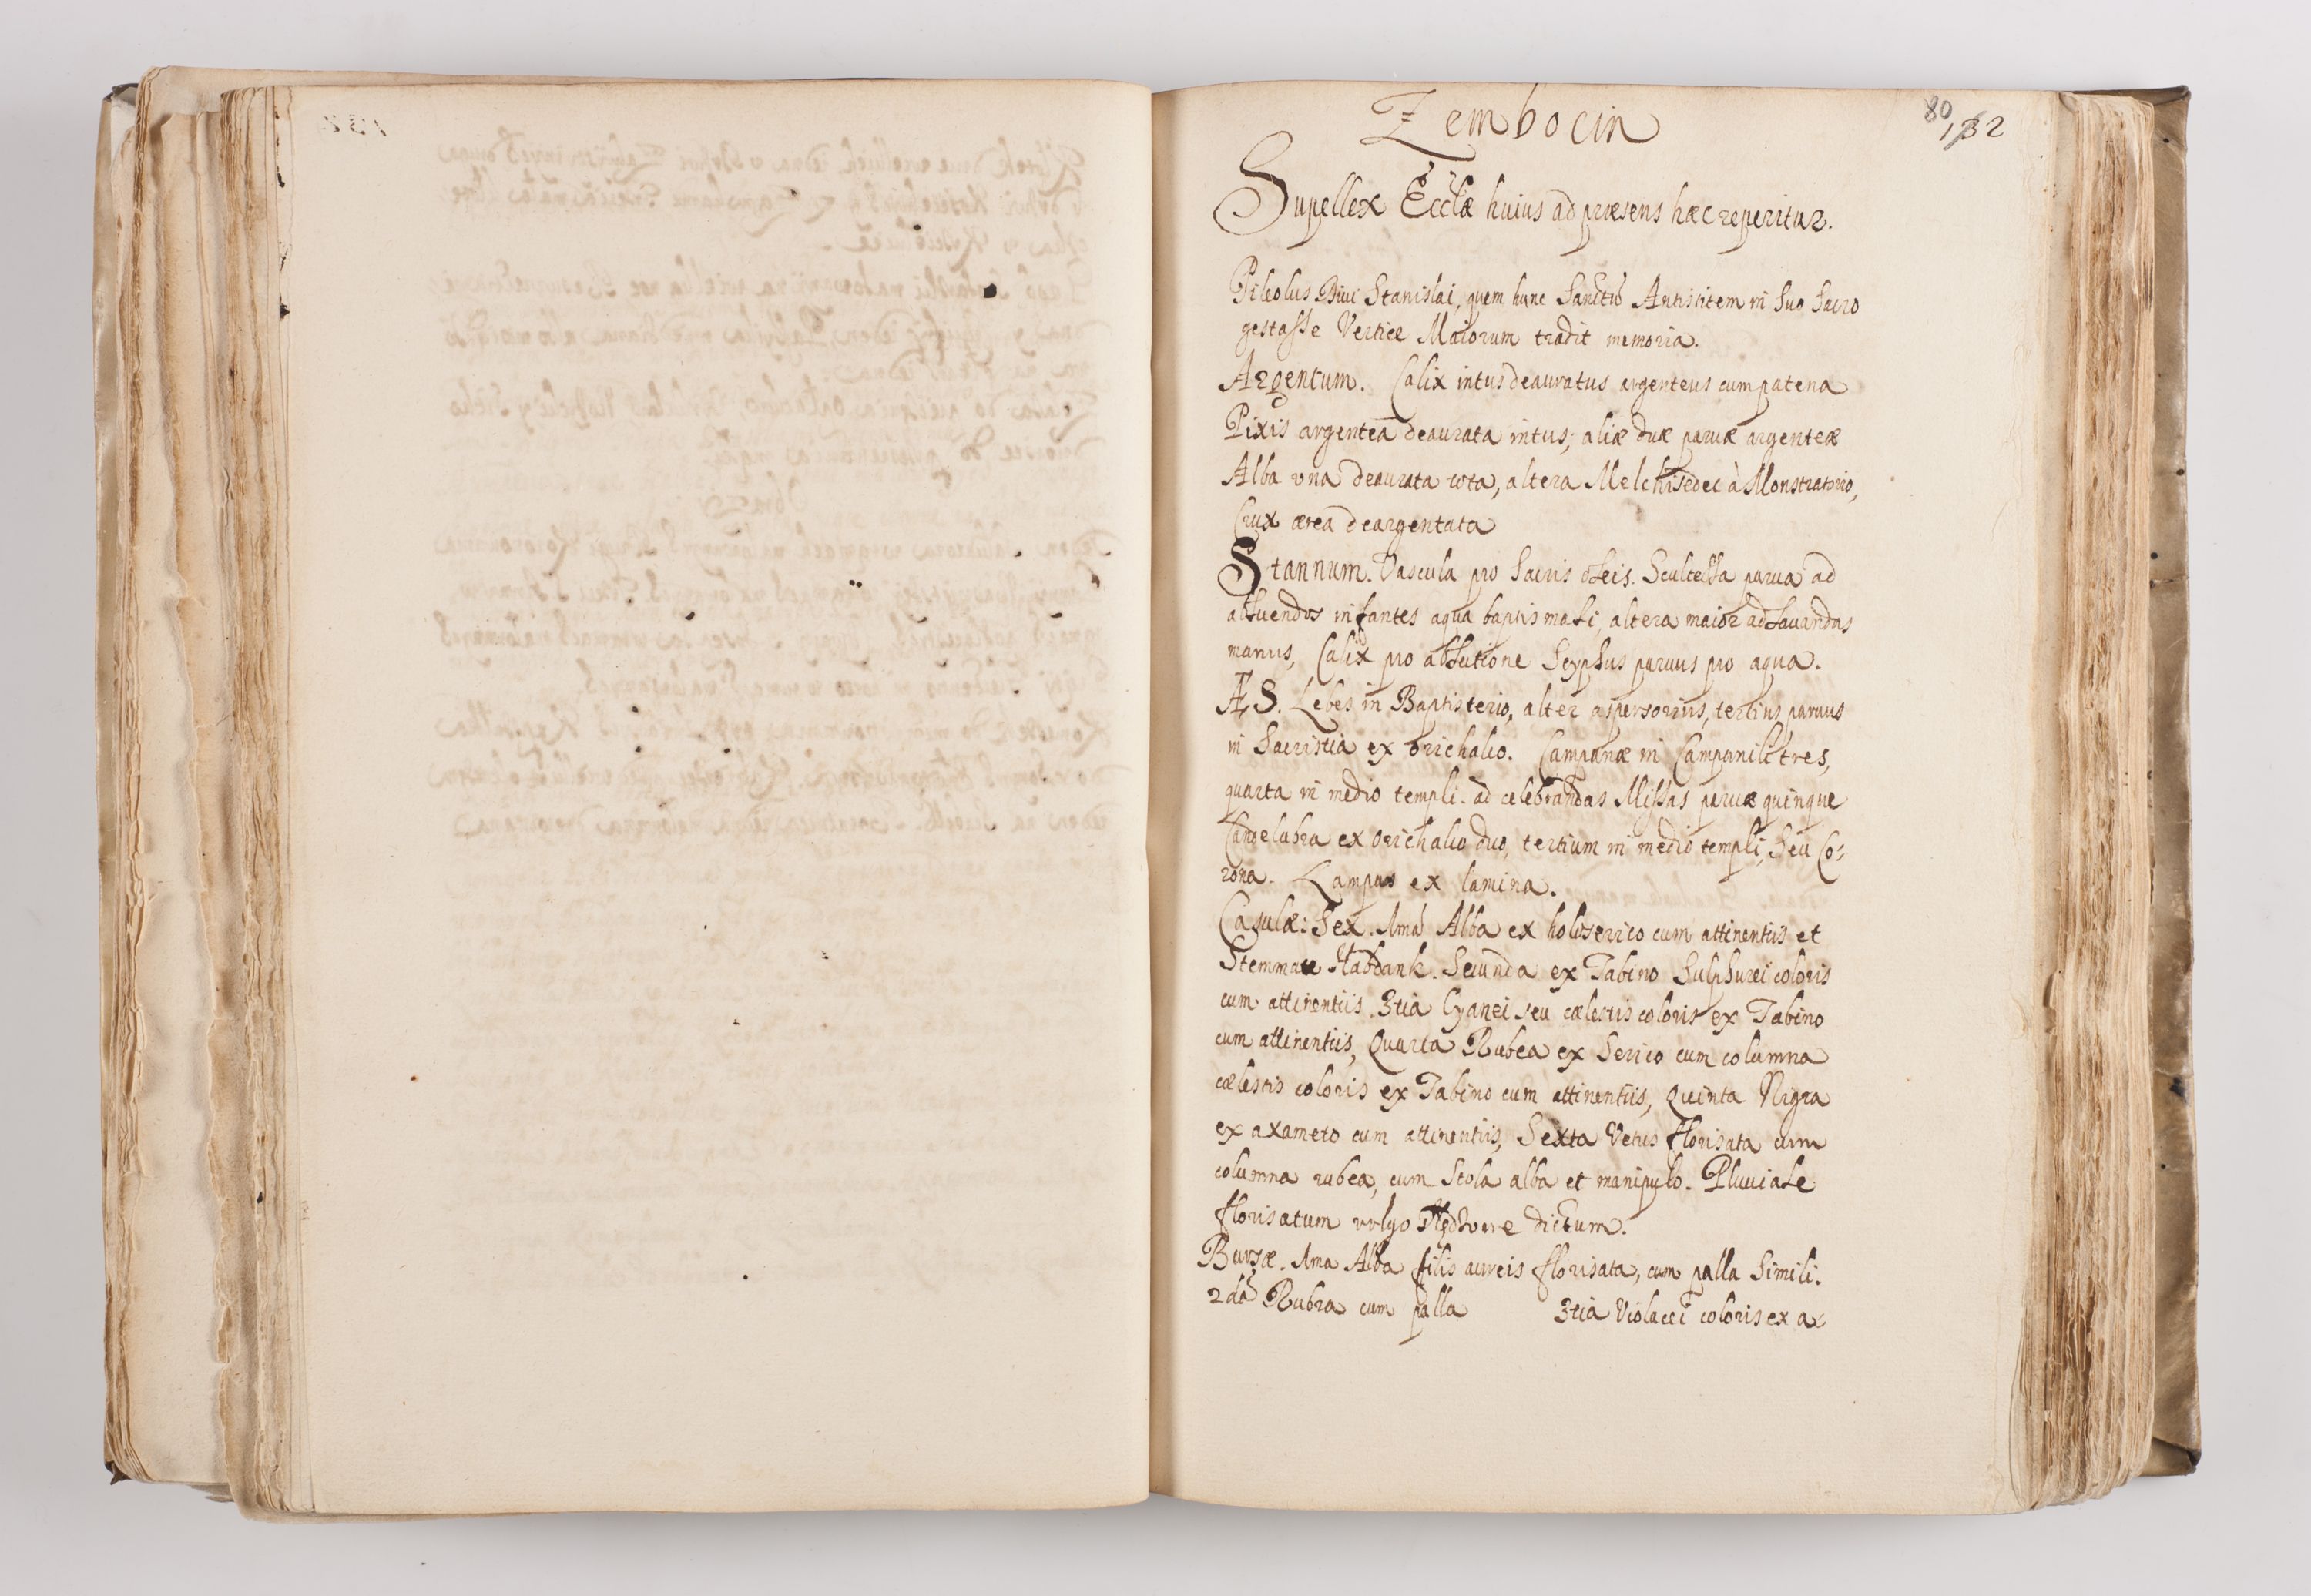 80
132
Zembocin
Supellex Eccłæ huius ad præsens hæc reperitur.
Pileolus Diui Stanislai, quem hunc Sanctũ Antistitem in suo sacro
gestasse Vertice Maiorum tradit memoria.
Argentum. Calix intus deauratus argenteus cum patena
Pixis argentea deaurata intus; aliæ duæ paruæ argenteæ
Alba vna deaurata rota, altera Melchisedec à Monstratorio,
Crux ærea deargentata
Stannum. Vascula pro sacris oleis. Scultella parua ad
abluendos infantes aqua baptismali, altera maior ad lauandas
manus, Calix pro ablutione Scyphus paruus pro aqua.
ÆS. Lebes in Baptisterio, alter aspersorius, tertius paruus
in Sacristia ex orichalco. Campanæ in Campanili tres,
quarta in medio templi. ad celebrandas Missas paruæ quinque
Candelabra ex orichalco duo, tertium in medio templi, seu Co:
rona. Lampas ex lamina.
Casulæ: Sex. 1ma Alba ex holoserico cum attinentiis et
Stemmate Habdank. Secunda ex Tabino Sulphurei coloris
cum attinentiis. 3tia Cyanei seu cælestis coloris ex Tabino
cum attinentiis, Quarta Rubea ex Serico cum columna
cælestis coloris ex Tabino cum attinentiis, Quinta Nigra
ex axameto cum attinentiis, Sexta Vetus florisata cum
columna rubea, cum Stola alba et manipulo. Pluuiale
florisatum vulgo dictum.
Bursæ. 1ma Alba filis aureis florisata, cum palla Simili.
2da Rubra cum palla 3tia Violacei coloris ex a: